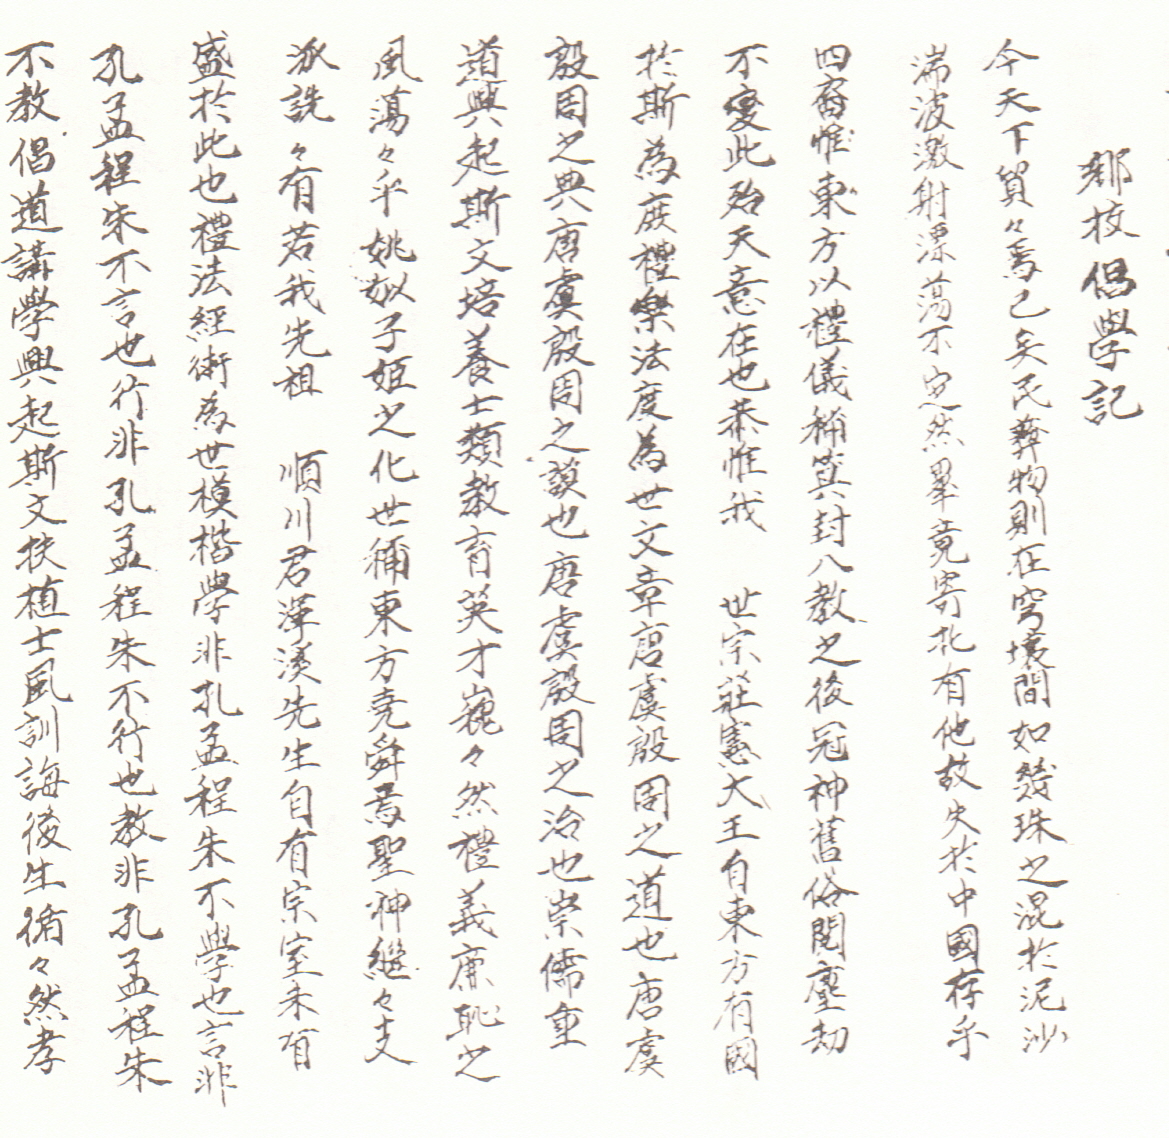 鄕校倡學記
今天下貿々焉已矣民彛物則在穹壤間如幾珠之混於泥沙
湍波激射漂蕩不定然畢竟寄托有他故失於中國存乎
四裔惟東方以禮儀稱箕封八敎之後冠神舊俗閱塵劫
不變此殆天意在也恭惟我 世宗莊憲大王自東方有國
於斯爲庶禮樂法度爲世文章唐虞殷周之道也唐虞
殷周之典唐虞殷周之謨也唐虞殷周之治也崇儒重
道興起斯文培養士類敎育英才巍々然禮義廉恥之
風蕩々乎姚姒子姬之化世稱東方堯舜焉聖神繼々支
派詵々有若我先祖 順川君渾溪先生自有宗室未有
盛於此也禮法經術爲世模楷學非孔孟程朱不學也言非
孔孟程朱不言也行非孔孟程朱不行也敎非孔孟程朱
不敎倡道講學興起斯文扶植士風訓誨後生循々然孝